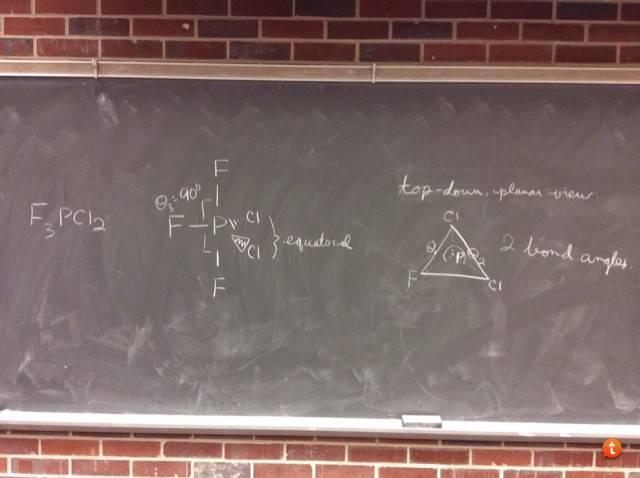 F₃PCl₂
F
θ₃=90°
F-P Cl
Cl } equatorial
F
top-down, planar view
Cl
θ (P) θ₂
F Cl
2 bond angles.